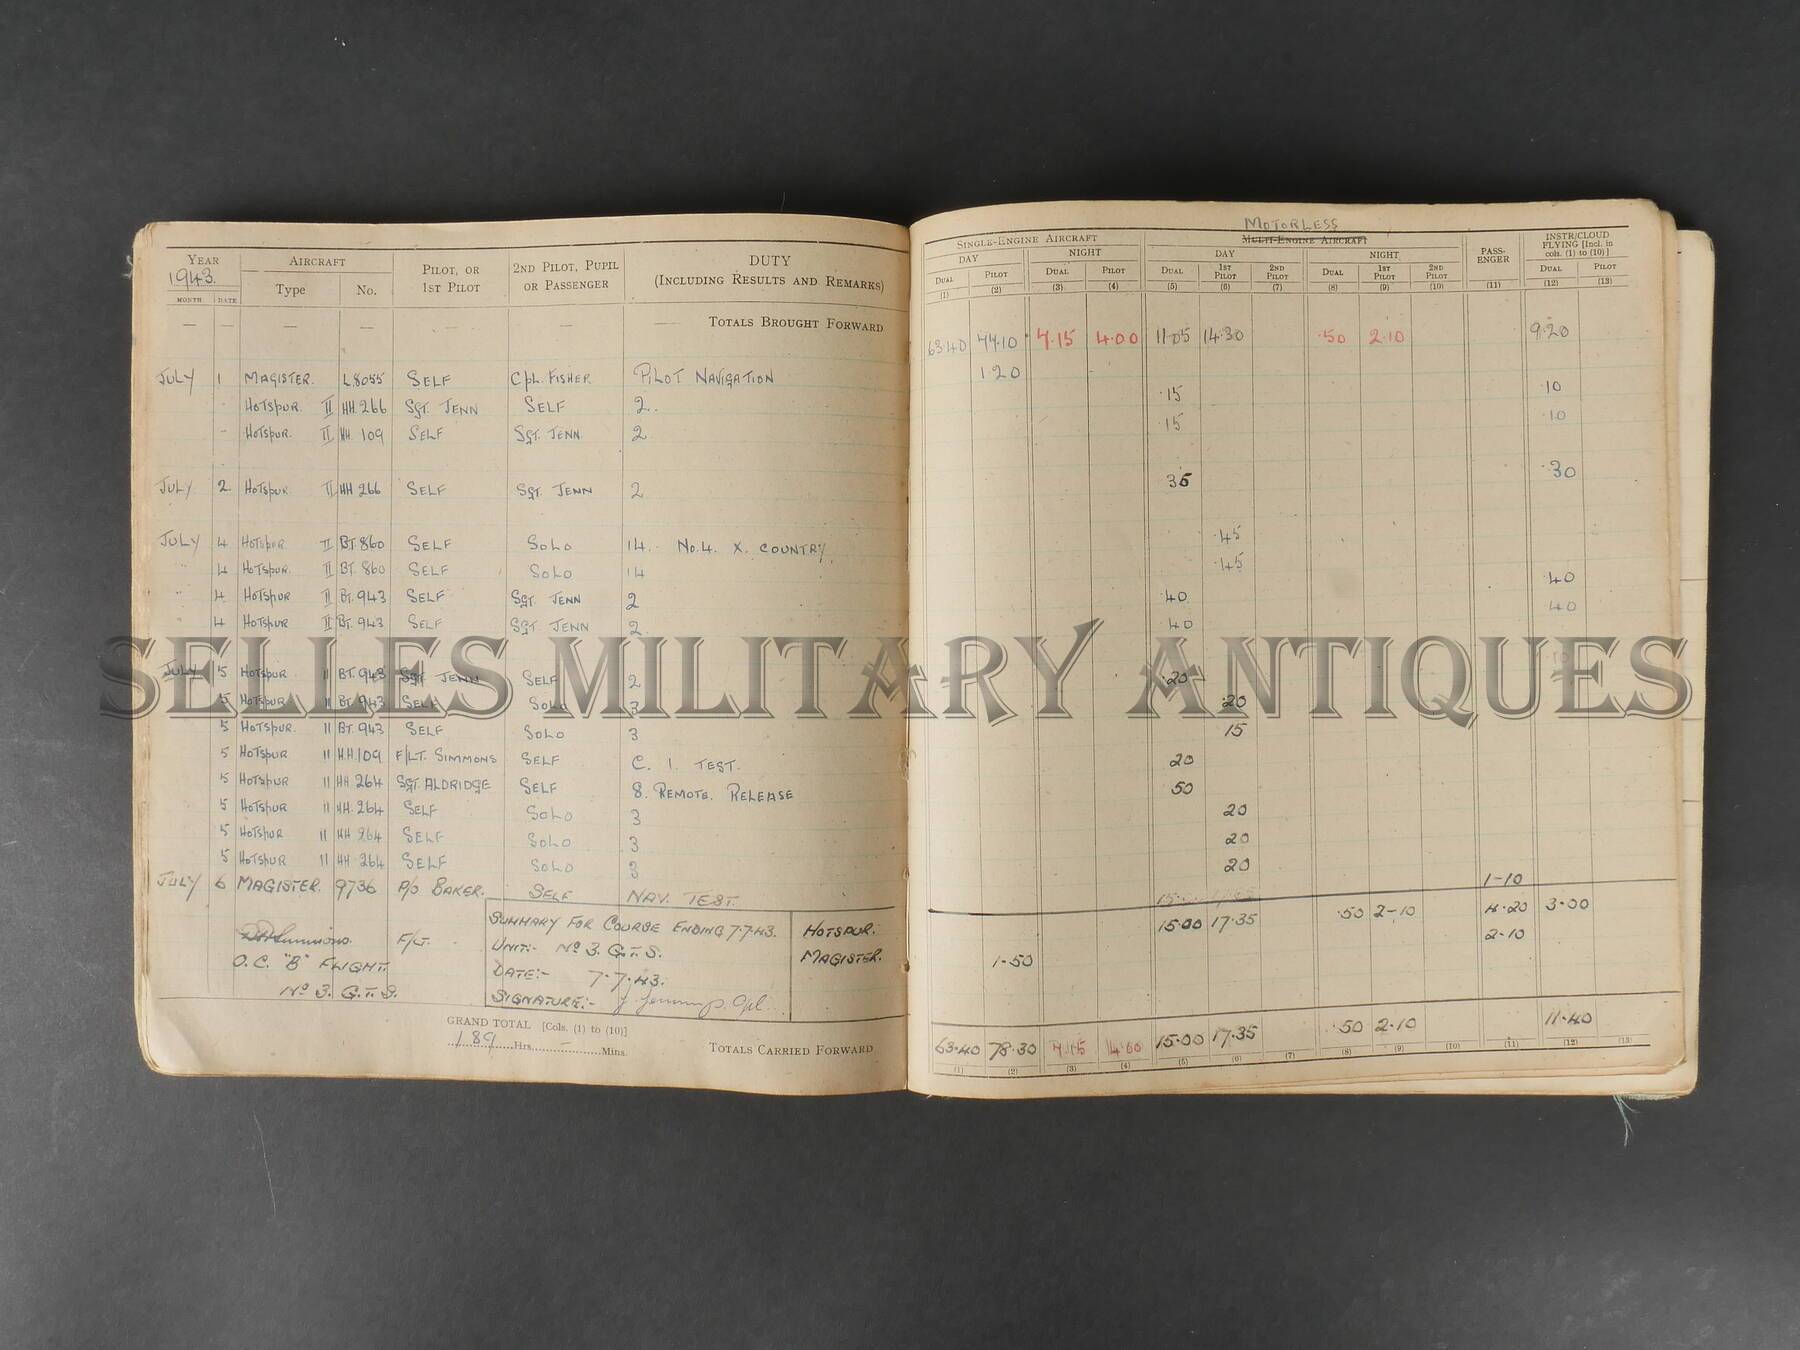 MOTORLESS
YEAR AIRCRAFT PILOT, OR 1ST PILOT 2ND PILOT, PUPIL OR PASSENGER DUTY (INCLUDING RESULTS AND REMARKS)
1943. Type No.
MONTH DATE
SINGLE-ENGINE AIRCRAFT MULTI-ENGINE AIRCRAFT PASS-ENGER INSTR/CLOUD FLYING [Incl. in cols. (1) to (10)]
DAY NIGHT DAY NIGHT
DUAL PILOT DUAL PILOT DUAL 1ST PILOT 2ND PILOT DUAL 1ST PILOT 2ND PILOT DUAL PILOT
(1) (2) (3) (4) (5) (6) (7) (8) (9) (10) (11) (12) (13)
— — — — — — — TOTALS BROUGHT FORWARD 63.40 77.10 7.15 4.00 11.05 14.30 .50 2.10 9.20
JULY 1 MAGISTER. L8055 SELF CPL. FISHER PILOT NAVIGATION 1 20
HOTSPUR. II HH.266 SGT. JENN SELF 2. .15 .10
HOTSPUR. II HH. 109 SELF SGT. JENN 2 .15 .10
JULY 2 HOTSPUR. II HH 266 SELF SGT. JENN 2 35 .30
JULY 4 HOTSPUR II BT.860 SELF SOLO 14. No.4. X. COUNTRY .45
4 HOTSPUR. II BT. 860 SELF SOLO 14 .45
4 HOTSPUR II BT.943 SELF SGT. JENN 2 .40 .40
4 HOTSPUR II BT.943 SELF SGT. JENN 2. .40 .40
JULY 5 HOTSPUR II BT.943 SGT JENN SELF 2 .20
5 HOTSPUR II BT.943 SELF SOLO 3 20
5 HOTSPUR. II BT.943 SELF SOLO 3 15
5 HOTSPUR II HH.109 F/LT. SIMMONS SELF C. I. TEST. 20
5 HOTSPUR II HH 264 SGT. ALDRIDGE SELF 8. REMOTE. RELEASE 50
5 HOTSPUR II HH. 264 SELF SOLO 3 20
5 HOTSPUR II HH 264 SELF SOLO 3 20
5 HOTSPUR II HH. 264 SELF SOLO 3 20
JULY 6 MAGISTER. 9736 P/O BAKER. SELF NAV. TEST. 1-10
SUMMARY FOR COURSE ENDING 7.7.43. HOTSPUR. 15.00 17.35 .50 2-10 4.20 3.00
Simmons. F/LT. UNIT:- No 3. G.T.S. MAGISTER. 1-50 2-10
O.C. "B" FLIGHT. DATE:- 7.7.43.
No 3. G.T.S. SIGNATURE:- Cpl.
GRAND TOTAL [Cols. (1) to (10)]
189 Hrs. – Mins. TOTALS CARRIED FORWARD 63.40 78.30 7.15 4.00 15.00 17.35 .50 2.10 11.40
(1) (2) (3) (4) (5) (6) (7) (8) (9) (10) (11) (12) (13)
SELLES MILITARY ANTIQUES